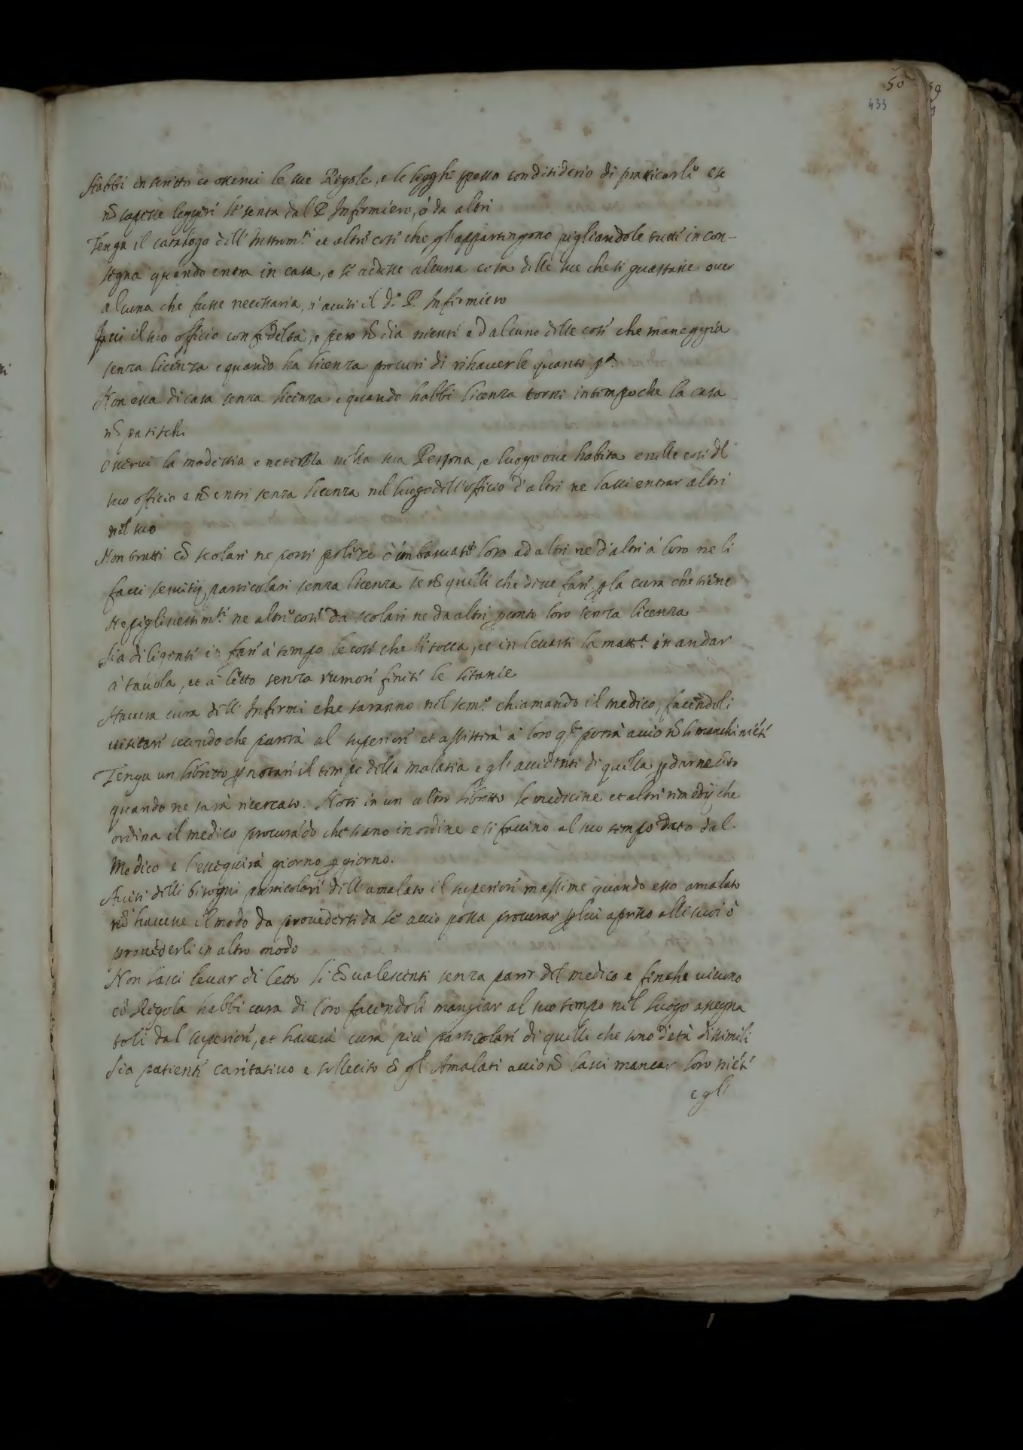 50
433
Habbi in scritto et osservi le sue Regole, e le leggha spesso con disiderio di praticarle e se
nõ sapesse leggere le senta dal P. Infirmiero, ò da altri
Tenga il catalogo dell' Instrom.ti et altre cose che gl'appartengono pigliandole tutte in con-
segna quando entra in casa, e se vedesse alcuna cosa delle sue che si guastasse over
alcuna che fusse necessaria, n'avisi il d.o P. Infirmiero
Facci il suo officio con fedeltà, e pero nõ dia niente ad alcuno delle cose che maneggia
senza licenza e quando ha licenza procuri di rihaverle quanto p.a
Non esca di casa senza licenza e quando habbi licenza torni in tempo che la casa
nõ patischi
Osservi la modestia e nettezza nella sua Persona, e luogo ove habita e nelle cose del
suo officio e nõ entri senza licenza nel luogo dell'officio d'altri ne lassi entrar altri
nel suo
Non tratti cõ scolari ne porti polize ò imbasciate loro ad altri ne d'altri à loro ne li
facci servitij particolari senza licenza se nõ quelli che deve fare p la cura che tiene
ne pigli vestim.ti ne altre cose da scolari ne da altri p conto loro senza licenza
Sia diligente in fare à tempo le cose che li tocca, et in levarsi la matt.a in andar
à tavola, et à letto senza rumore finite le litanie
Haverà cura dell' Infirmi che saranno nel sem.o chiamando il medico, facendoli
visitare secondo che parerà al superiore et assisterà à loro q.to potrà acciò nõ li manchi niẽte
Tenga un libretto p notare il tempo della malatia e gl'accidenti di quella p darne cõto
quando ne sarà ricercato. Noti in un altro libretto le medicine et altri rimedij che
ordina il medico procurãdo che siano in ordine e si faccino al suo tempo dato dal
Medico e l'esseguirà giorno p giorno.
Avisi delli bisogni particolari dell' amalato il superiore massime quando esso amalato
nõ havesse il modo da provedersi da se acciò possa procurar p lui apresso alle suoi ò
provederli in altro modo
Non lasci levar di letto li cõvalescenti senza parer del medico e finche vivono
cõ Regola habbi cura di loro facendoli mangiar al suo tempo nel luogo assegna
toli dal superiore, et haverà cura più particolare di quelli che sono d'età dissimili
Sia patiente caritativo e sollecito cõ gl'Amalati acciò nõ lasci mancar loro niẽte
e gli